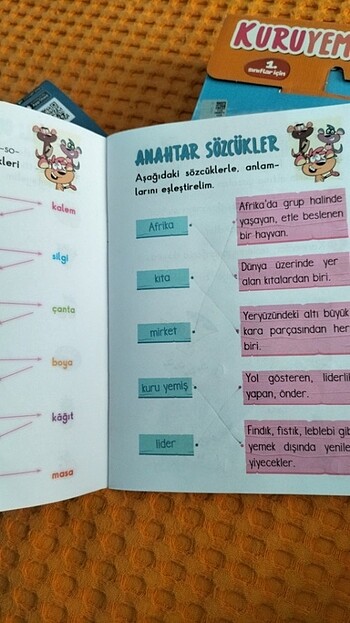 KURUYEM
1.
sınıflar için
ANAHTAR SÖZCÜKLER
Aşağıdaki sözcüklerle, anlam-
larını eşleştirelim.
-so-
kleri
kalem
silgi
çanta
boya
kâğıt
masa
Afrika
kıta
mirket
kuru yemiş
lider
Afrika'da grup halinde
yaşayan, etle beslenen
bir hayvan.
Dünya üzerinde yer
alan kıtalardan biri.
Yeryüzündeki altı büyük
kara parçasından her
biri.
Yol gösteren, liderlik
yapan, önder.
Fındık, fıstık, leblebi gib
yemek dışında yenile
yiyecekler.